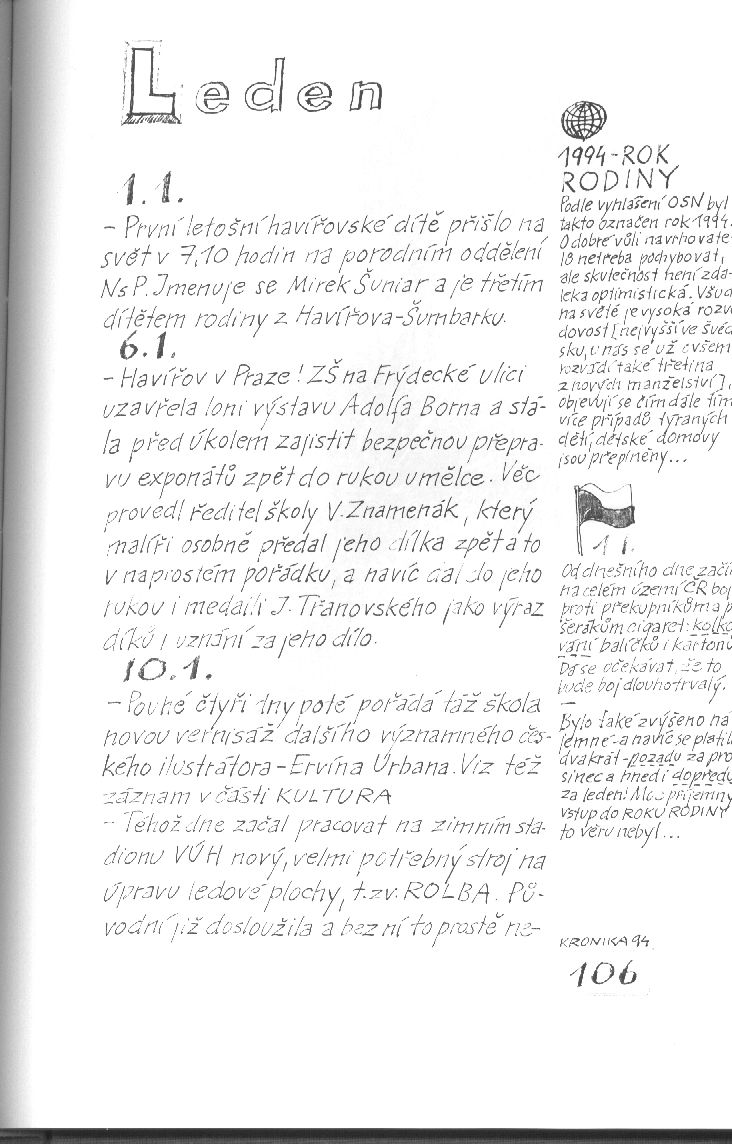 Leden
1.1.
- První letošní havířovské dítě přišlo na
svět v 7,10 hodin na porodním oddělení
NsP. Jmenuje se Mirek Šuniar a je třetím
dítětem rodiny z Havířova-Šumbarku.
6.1.
- Havířov v Praze! ZŠ na Frýdecké ulici
uzavřela loni výstavu Adolfa Borna a stá-
la před úkolem zajistit bezpečnou přepra-
vu exponátů zpět do rukou umělce. Věc
provedl ředitel školy V. Znamenák, který
malíři osobně předal jeho dílka zpět a to
v naprostém pořádku, a navíc dal do jeho
rukou i medaili J. Třanovského jako výraz
díků i uznání za jeho dílo.
10.1.
- Pouhé čtyři dny poté pořádá táž škola
novou vernisáž dalšího významného čes-
kého ilustrátora - Ervína Urbana. Viz též
záznam v části KULTURA
- Téhož dne začal pracovat na zimním sta-
dionu VÚH nový, velmi potřebný stroj na
úpravu ledové plochy, t.zv. ROLBA. Pů-
vodní již dosloužila a bez ní to prostě ne-
1994 - ROK
RODINY
Podle vyhlášení OSN byl
takto označen rok 1994.
O dobré vůli navrhovate-
lů netřeba pochybovat,
ale skutečnost není zda-
leka optimistická. Všud
na světě je vysoká rozv
dovost [nejvyšší ve Švéd
sku, u nás se už ovšem
rozvádí také třetina
z nových manželství],
objevují se čím dále tím
více případů týraných
dětí, dětské domovy
jsou přeplněny...
1 1.
Od dnešního dne začí
na celém území ČR boj
proti překupníkům a p
šerákům cigaret: kolko
vání balíčků i kartonů
Dá se očekávat, že to
bude boj dlouhotrvalý.
—
Bylo také zvýšeno ná
jemné - a navíc se platil
dvakrát - pozadu za pro
sinec a hned i dopředu
za leden! Moc příjemný
vstup do ROKU RODINY
to věru nebyl...
KRONIKA 94
106